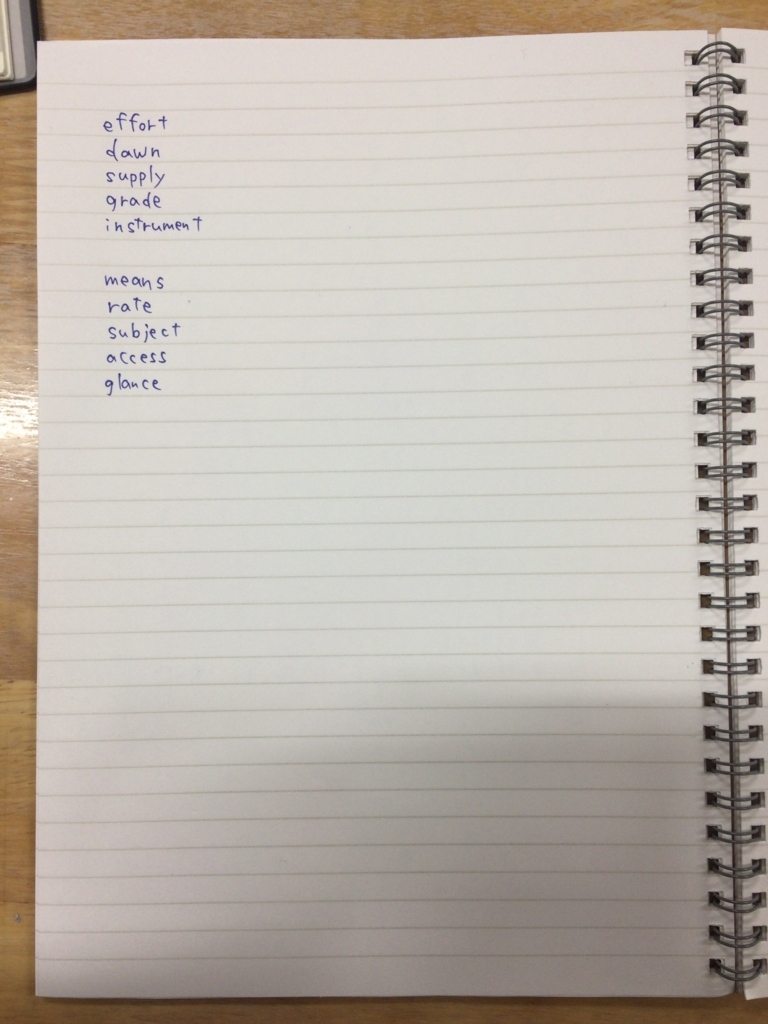 effort
dawn
supply
grade
instrument
means
rate
subject
access
glance